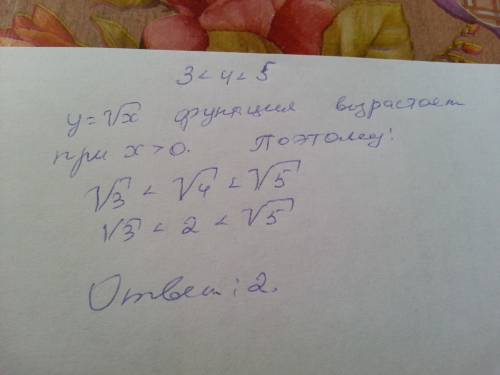 3 < 4 < 5
y = √x функция возрастает
при x > 0. Поэтому:
√3 < √4 < √5
√3 < 2 < √5
Ответ: 2.